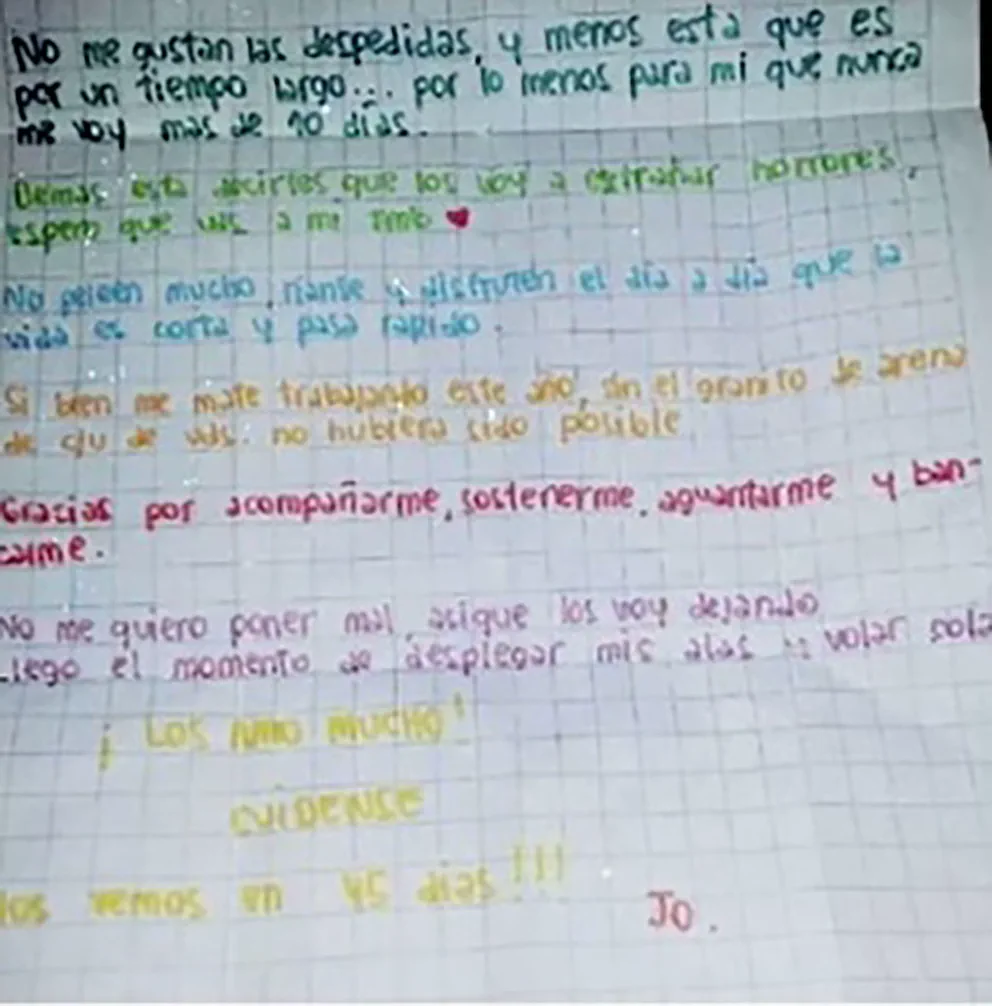 No me gustan las despedidas, y menos esta que es
por un tiempo largo... por lo menos para mi que nunca
me voy mas de 10 dias.
Demas esta decirles que los voy a extrañar horrores!,
espero que uds a mi tmb ♥
No peleen mucho, rianse y disfruten el dia a dia que la
vida es corta y pasa rapido.
Si bien me mate trabajando este año, sin el granito de arena
de c/u de uds. no hubiera sido posible
Gracias por acompañarme, sostenerme, aguantarme y ban-
carme.
No me quiero poner mal, asique los voy dejando
Llego el momento de desplegar mis alas y volar sola
¡Los Amo MUCHO!
CUIDENSE
Nos vemos en 45 dias!!!
Jo.